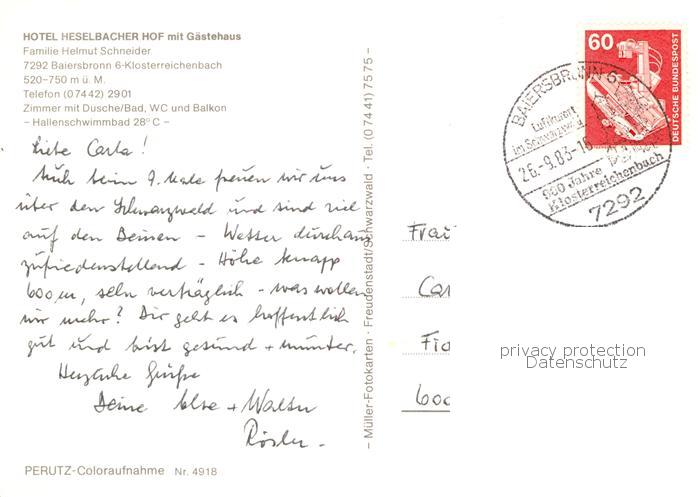 HOTEL HESELBACHER HOF mit Gästehaus
Familie Helmut Schneider
7292 Baiersbronn 6-Klosterreichenbach
520–750 m ü. M.
Telefon (07442) 2901
Zimmer mit Dusche/Bad, WC und Balkon
– Hallenschwimmbad 28° C –
Liebe Carla!
Auch beim 9. Male freuen wir uns
über den Schwarzwald und sind viel
auf den Beinen – Wetter durchaus
zufriedenstellend – Höhe knapp
600 m, sehr verträglich – was wollen
wir mehr? Dir geht es hoffentlich
gut und bist gesund + munter.
Herzliche Grüße
Deine Else + Walter
Rösler.
PERUTZ-Coloraufnahme Nr. 4918
– Müller-Fotokarten · Freudenstadt/Schwarzwald · Tel. (07441) 7575 –
60
DEUTSCHE BUNDESPOST
BAIERSBRONN 6
Luftkurort
im Schwarzwald
26.-9.83-16
900 Jahre
Klosterreichenbach
7292
Frau
Car
600
privacy protection
Datenschutz